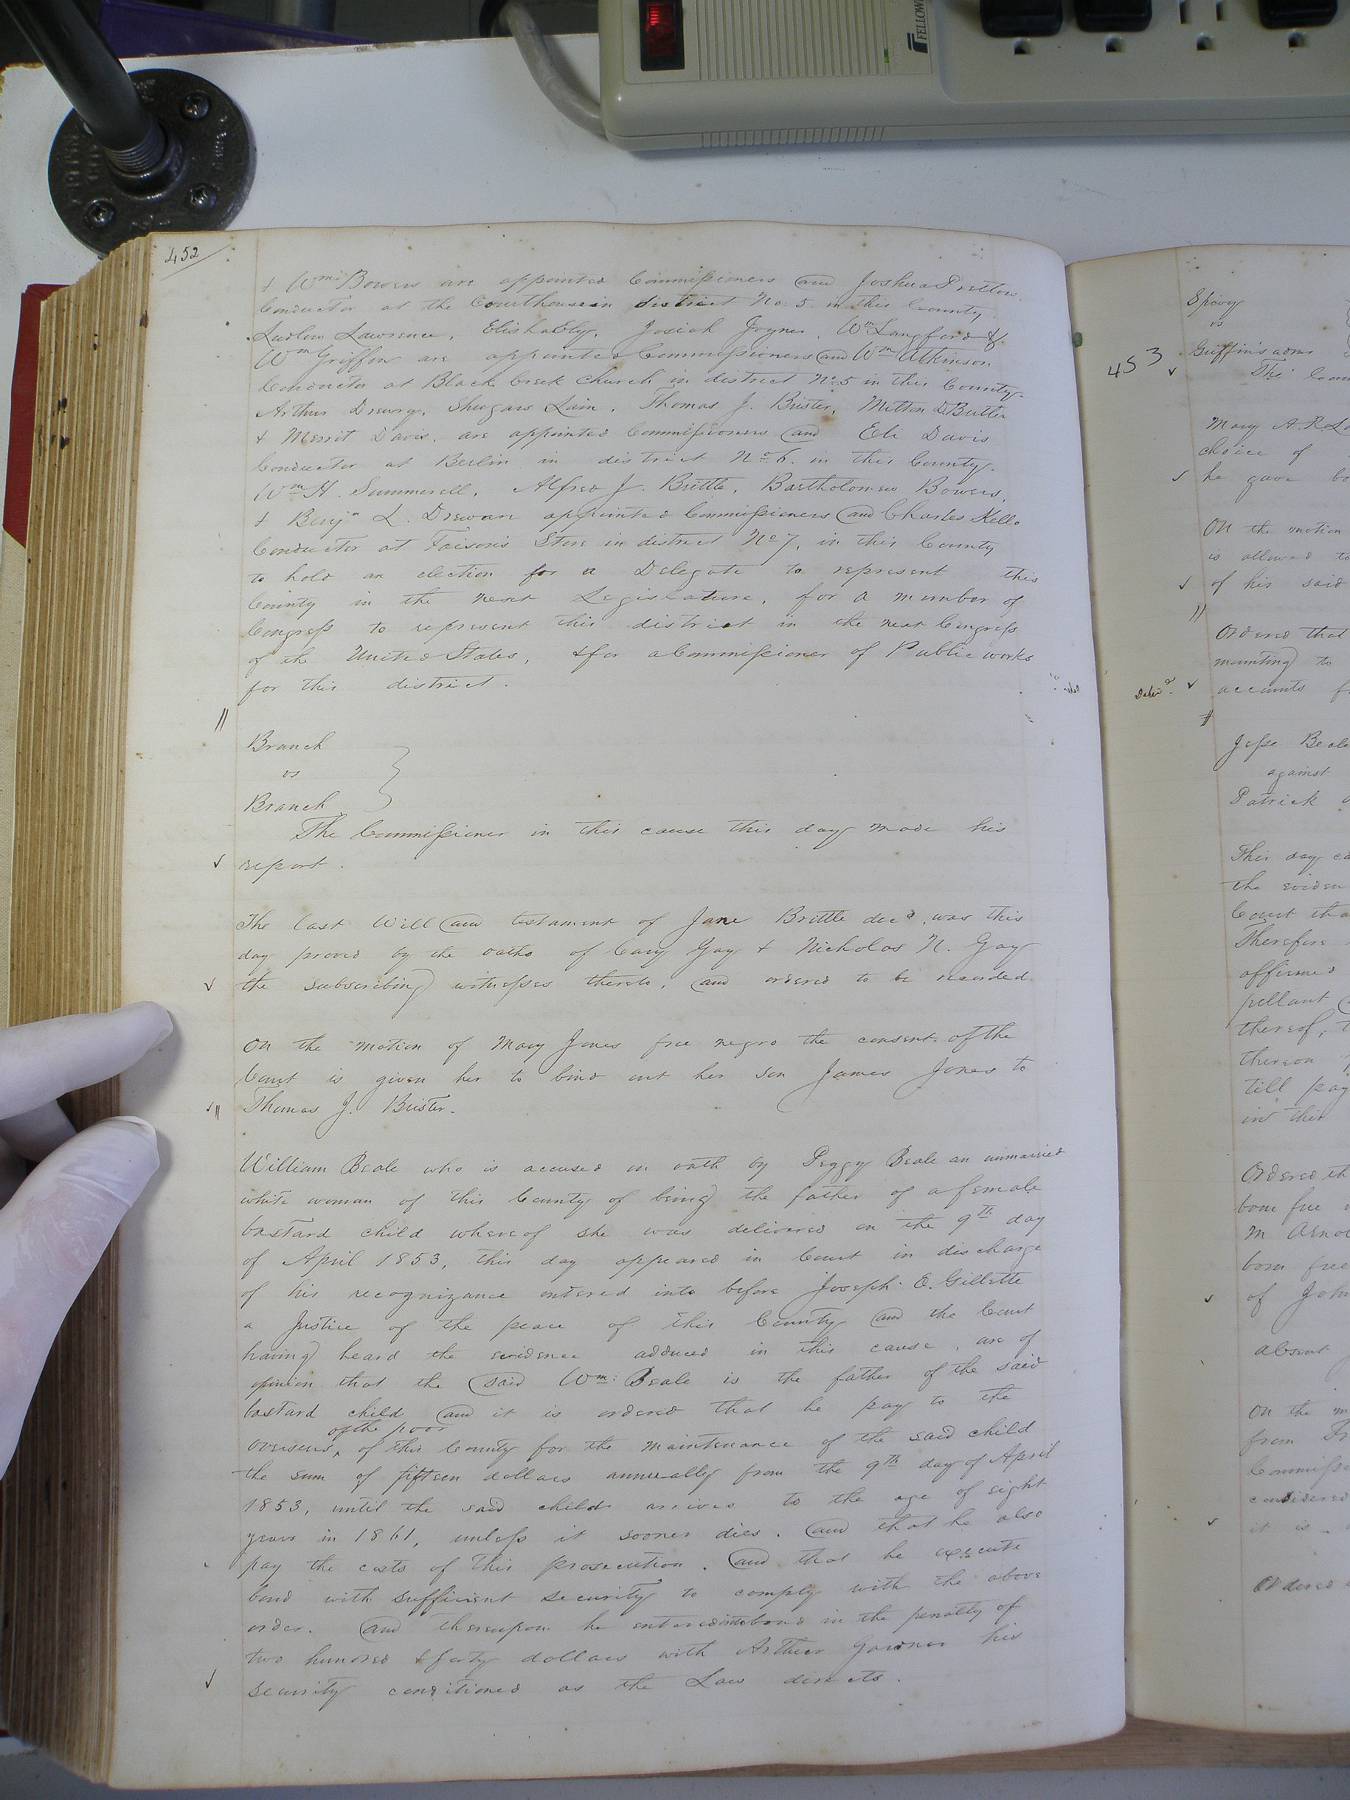 452
& Wm Bowers are appointed Commissioners and Joshua Pretlow
Conductor at the Courthouse in district No. 5 in this County
Ludlow Lawrence, Elisha Ely, Josiah Joyner, Wm Langford &
Wm Griffin are appointed Commissioners and Wm Atkinson
Conductor at Black Creek Church in district No. 5 in this County.
Arthur Drewry, Lain, Thomas J. Brister, Milton D Butler
& Merrit Davis, are appointed Commissioners and Eli Davis
Conductor at Berlin in district No 6. in this County.
Wm H. Summerell, Alfred J. Brittle, Bartholomew Bowers,
& Benjn L. Drewan appointed Commissioners and Charles Kello
Conductor at Faison's Store in district No 7, in this County
to hold an election for a Delegate to represent this
County in the next Legislature, for a member of
Congress to represent this district in the next Congress
of the United States, & for a Commissioner of Public works
for this district.
Branch
vs
Branch
The Commissioner in this cause this day made his
report.
The last Will and testament of Jane Brittle decd was this
day proved by the oaths of Cary Gay & Nicholas N. Gay
the subscribing witnesses thereto, and ordered to be recorded
On the motion of Mary Jones free negro the consent of the
Court is given her to bind out her son James Jones to
Thomas J. Brister.
William Beale who is accused on oath by Peggy Beale an unmarried
white woman of this County of being the father of a female
bastard child whereof she was delivered on the 9th day
of April 1853, this day appeared in Court in discharge
of his recognizance entered into before Joseph E. Gillette
a Justice of the peace of this County and the Court
having heard the evidence adduced in this cause, are of
opinion that the said Wm: Beale is the father of the said
bastard child and it is ordered that he pay to the
of the poor
overseers of this County for the maintenance of the said child
the sum of fifteen dollars annually from the 9th day of April
1853, until the said child arrives to the age of eight
years in 1861, unless it sooner dies. and that he also
pay the costs of this prosecution. and that he execute
bond with sufficient security to comply with the above
order. and thereupon he entered into bond in the penalty of
two hundred & forty dollars with Arthur Gardner his
security conditioned as the Law directs.
453
Spivey
vs
Griffin's admr
The
Mary A. R.
choice of
he gave
On the motion
is allowed to
of his said
Ordered that
mounting to
accounts
Jesse Beale
against
Patrick
This day
the eviden
Court tha
Therefore
affirmed
pellant
thereof,
thereon
till pay
in this
Ordered th
born free
M
born free
of John
absent
On the m
from
Commiss
considered
it is
Ordered
FELLOW